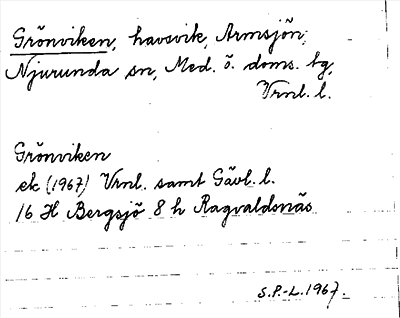 Grönviken, havsvik, Armsjön,
Njurunda sn, Med. ö. doms. tg,
Vrnl. l.
Grönviken
ek (1967) Vrnl. samt Gävl. l.
16 H Bergsjö 8 h Ragvaldsnäs
S.P.-L. 1967.